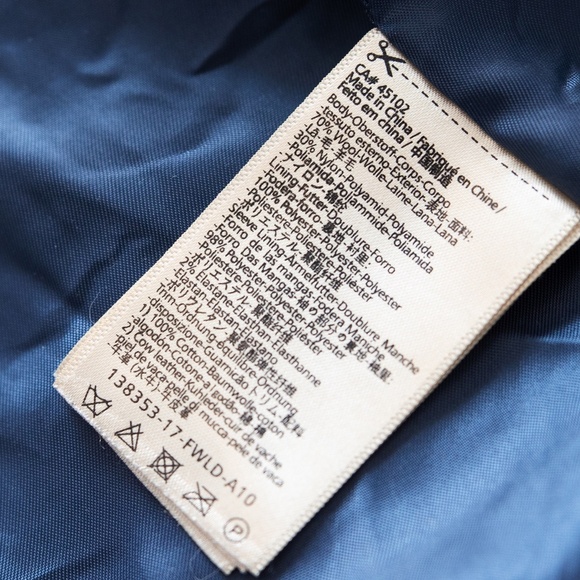 CA# 45102
Made in China / Fabriqué en Chine /
Feito em china / 中国製造
Body-Oberstoff-Corps-Corpo
-tessuto esterno-Exterior-表地-面料:
70% Wool-Wolle-Laine-Lana-Lana
-Lã-毛-羊毛
30% Nylon-Polyamid-Polyamide
-Poliamide-Poliammide-Poliamida
-ナイロン-锦纶
Lining-Futter-Doublure-Forro
-Fodera-Forro-裏地-衬里:
100% Polyester-Polyester-Polyester
-Poliéster-Poliestere-Poliéster
-ポリエステル-聚酯纤维
Sleeve Lining-Ärmelfutter-Doublure Manche
-Forro Das Mangas-Fodera Maniche
98% Polyester-Polyester-Polyester
-Poliéster-Poliestere-Poliéster
-ポリエステル-聚酯纤维
2% Elastane-Elasthan-Elasthanne
-Elastan-Elastan-Elastano
-ポリウレタン
Trim-Ordnung-équilibre-Ordnung
-disposizione-Guarnição-トリム-配料
1) 100% Cotton-Baumwolle-coton
-algodón-Cotone-algodão-綿-棉
2) Cow leather-Kuhleder-cuir de vache
-piel de vaca-pelle di mucca-pele de vaca
-牛革(水牛)-牛皮革
138353-17-FWLD-A10
P